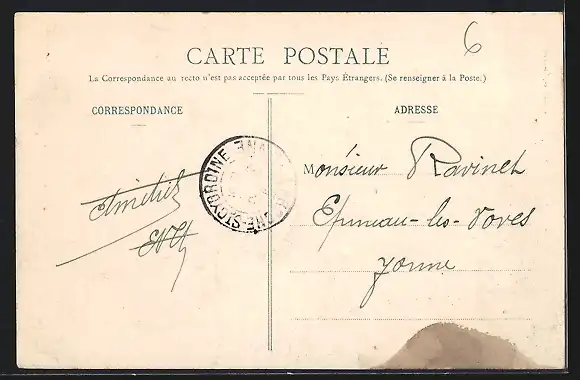 6
CARTE POSTALE
La Correspondance au recto n'est pas acceptée par tous les Pays Étrangers. (Se renseigner à la Poste.)
CORRESPONDANCE
ADRESSE
Monsieur Ravinet
Epineau-les-Voves
Yonne
Amitiés